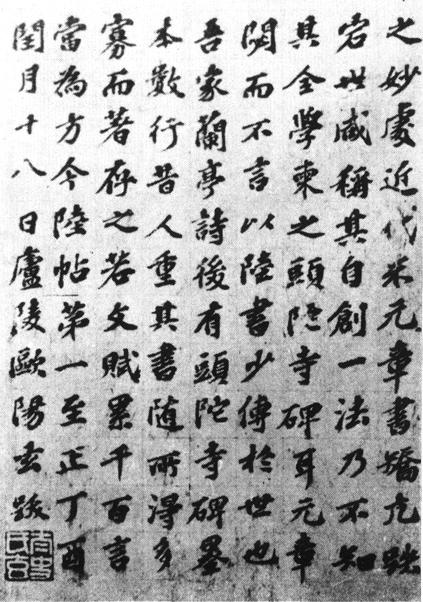 之妙處近代米元章書矯亢跌
宕世咸稱其自創一法乃不知
其全學柬之頭陁寺碑耳元章
閟而不言以陸書少傳於世也
吾家蘭亭詩後有頭陀寺碑墨
本數行昔人重其書隨所得多
寡而著存之若文賦累千百言
當為方今陸帖第一至正丁酉
閏月十八日廬陵歐陽玄跋